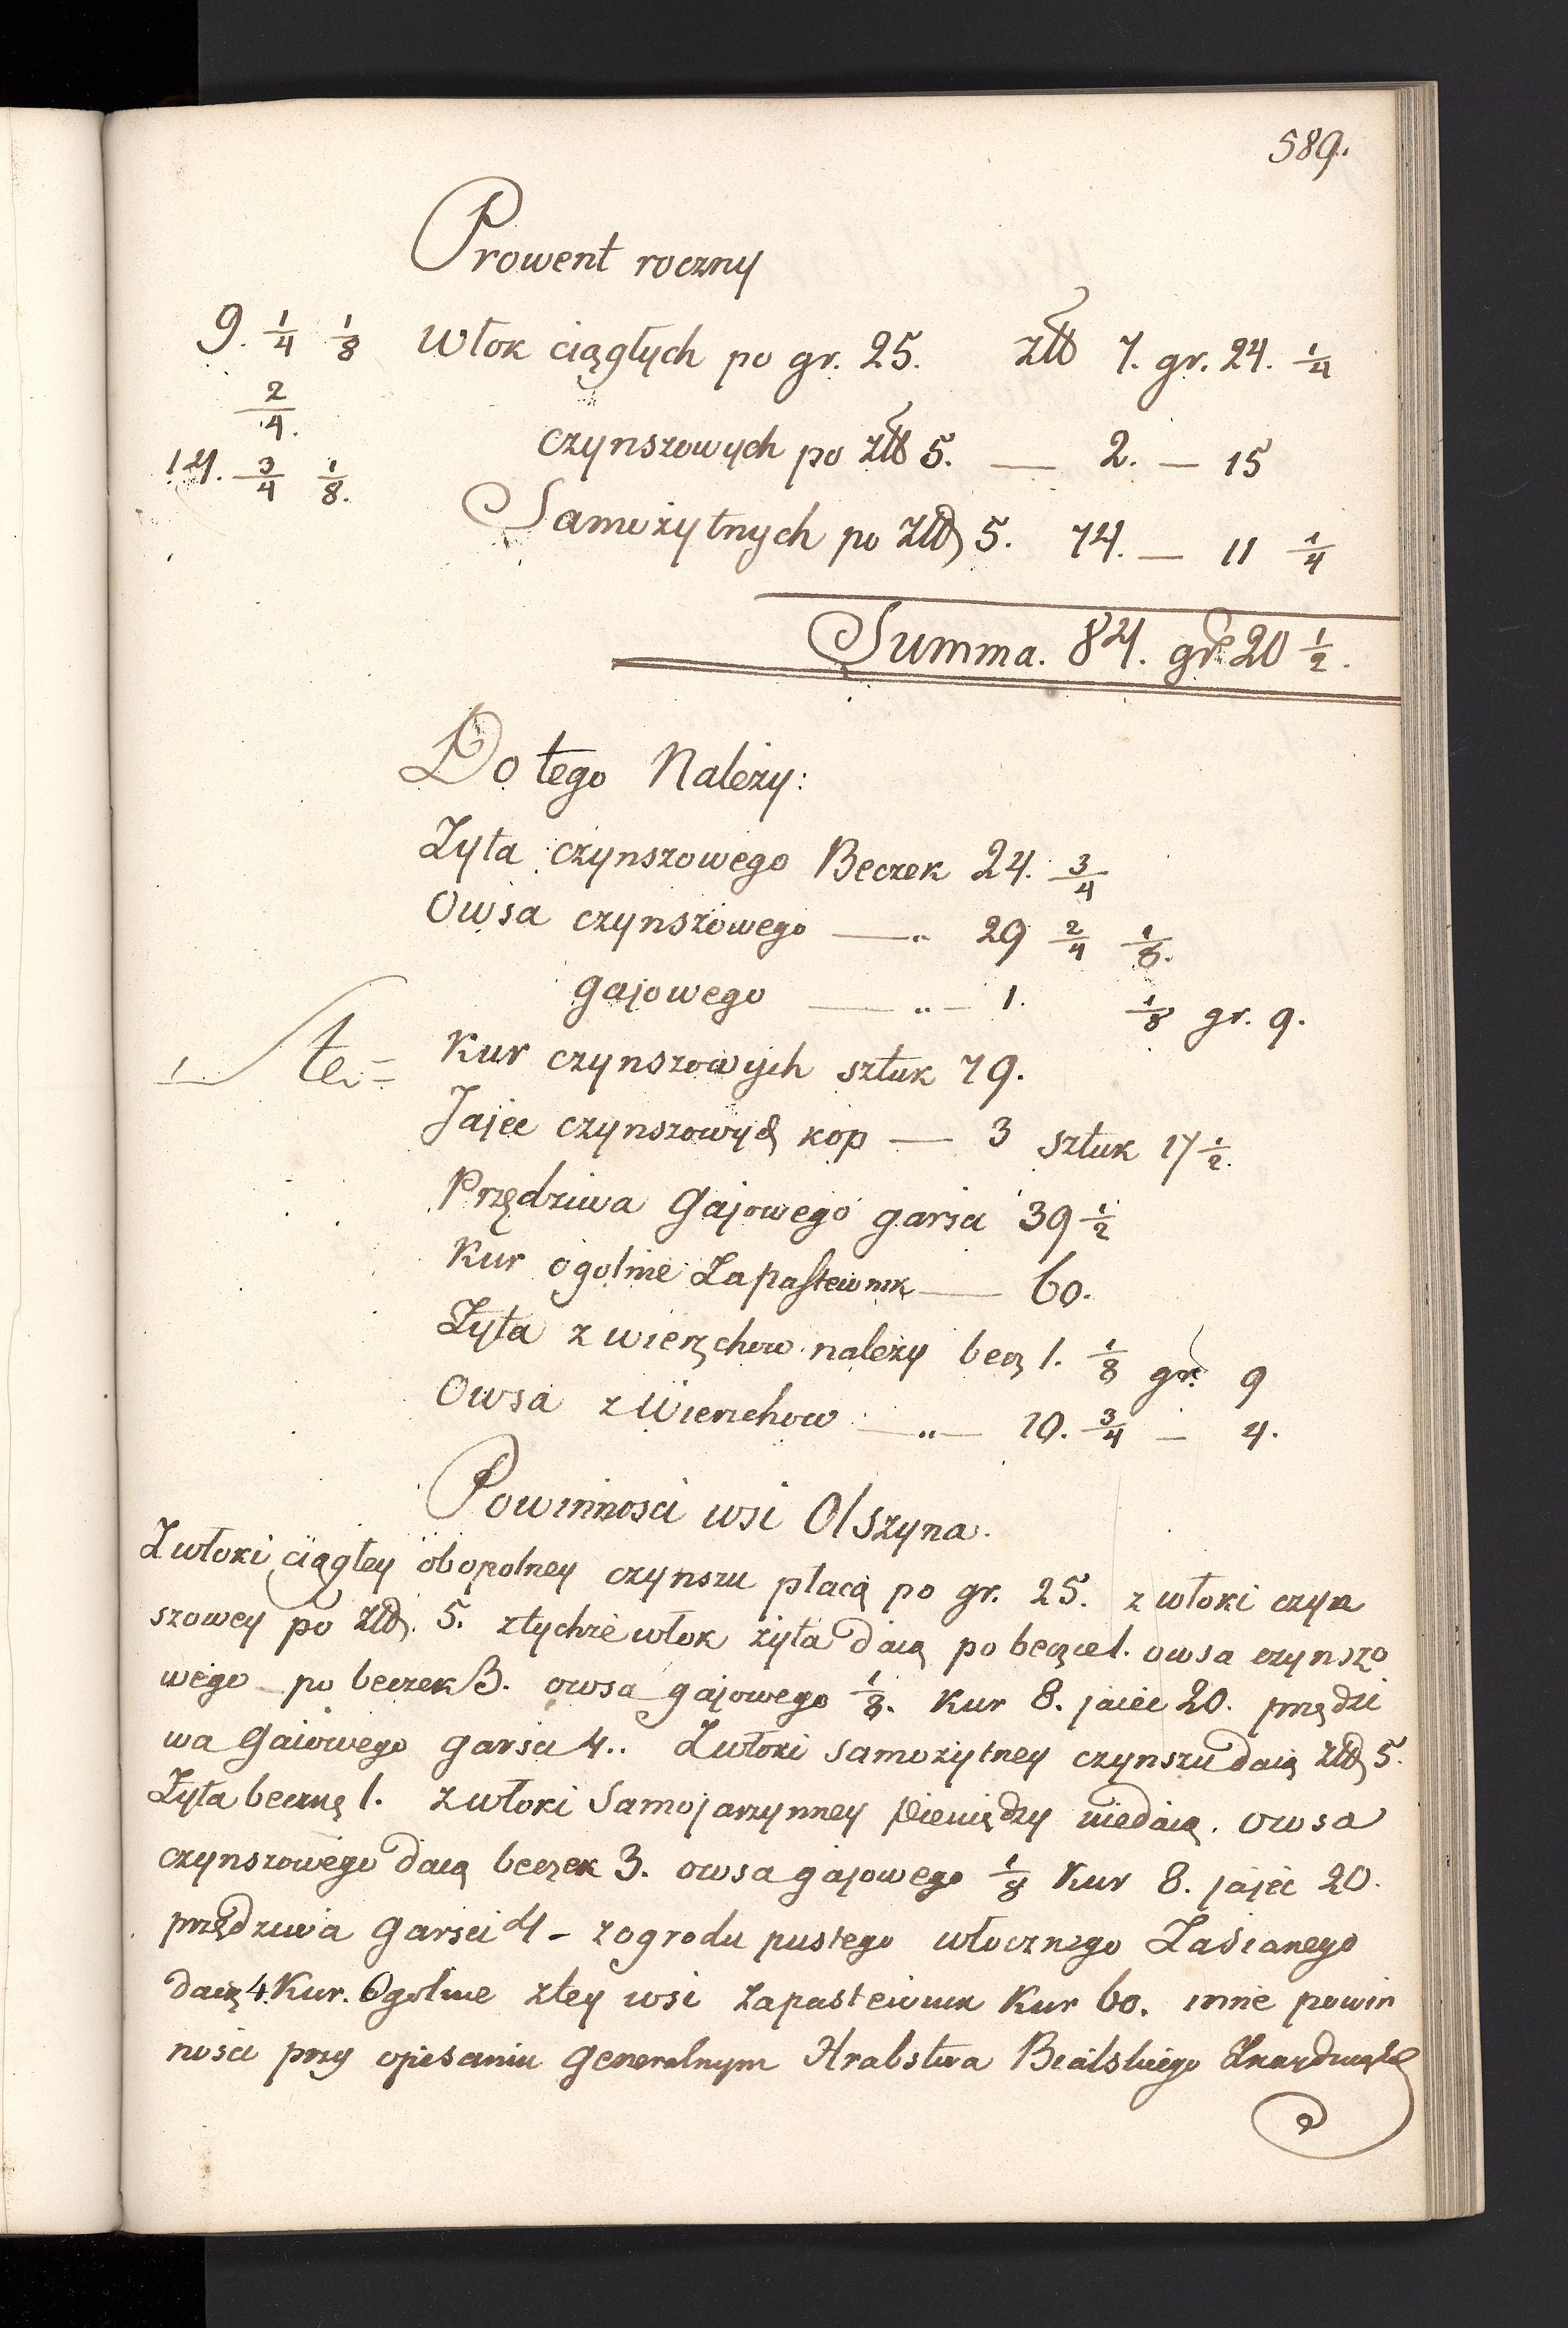 589.
Prowent roczny
9. 1/4 1/8 Włok ciągłych po gr. 25. złł 7. gr. 24. 1/4
2/4. czynszowych po złł 5. — 2. — 15
14. 3/4 1/8. Samożytnych po złł 5. 74. — 11 1/4
Summa. 84. gr. 20 1/2.
Do tego Należy:
Żyta czynszowego Beczek 24. 3/4
Owsa czynszowego — „ 29 2/4 1/8.
gajowego — „ — 1. 1/8 gr. 9.
Kur czynszowych sztuk 79.
Jajec czynszowych kop — 3 sztuk 17 1/2.
Przędziwa Gajowego garsci 39 1/2
Kur ogolnie Zapastewnik — 60.
Żyta z wierzchow należy becz 1. 1/8 gr. 9
Owsa z Wierzchow — „ — 10. 3/4 — 4.
Powinnosci wsi Olszyna.
Z włoki ciągłey obopolney czynszu płacą po gr. 25. z włoki czyn
szowey po złł. 5. z tychże włok żyta daią po beczce 1. owsa czynszo
wego — po beczek 3. owsa gajowego 1/8. Kur 8. jaiec 20. przędzi
wa Gaiowego garsci 4.. Z włoki samożytney czynszu daią złł 5.
Żyta beczkę 1. z włoki Samojarzynney pieniędzy niedaią. owsa
czynszowego daią beczek 3. owsa gajowego 1/8 Kur 8. jajec 20.
przędziwa Garsci 4 - z ogrodu pustego włocznego Zasianego
daią 4 Kur. Ogolnie z tey wsi zapasteiwnik Kur 60. inne powin
nosci przy opisaniu Generalnym Hrabstwa Bialskiego